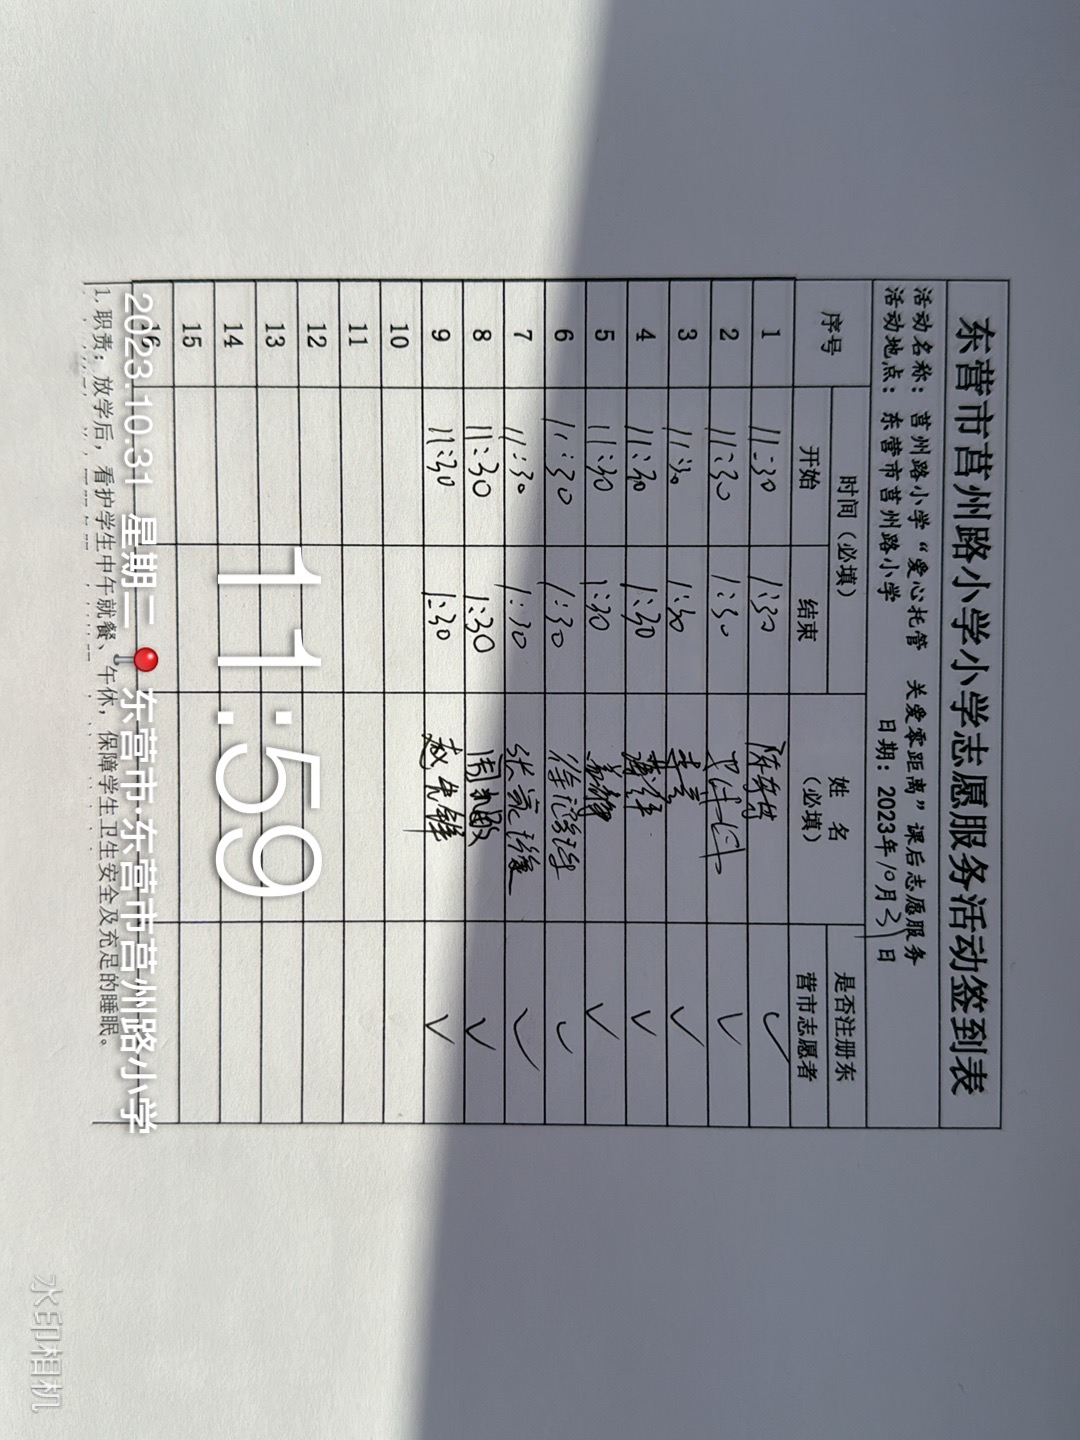 东营市莒州路小学小学志愿服务活动签到表
活动名称：莒州路小学“爱心托管 关爱零距离”课后志愿服务
活动地点：东营市莒州路小学 日期：2023年10月31日
序号 时间（必填） 姓名（必填） 是否注册东营市志愿者
开始 结束
1 11:30 1:30 ✓
2 11:30 1:30 ✓
3 11:30 1:30 李青 ✓
4 11:30 1:30 ✓
5 11:30 1:30 ✓
6 11:30 1:30 ✓
7 11:30 1:30 ✓
8 11:30 1:30 ✓
9 11:30 1:30 赵先锋 ✓
10
11
12
13
14
15
16
1.职责：放学后，看护学生中午就餐、午休，保障学生卫生安全及充足的睡眠。
11:59
2023.10.31 星期二 东营市·东营市莒州路小学
水印相机